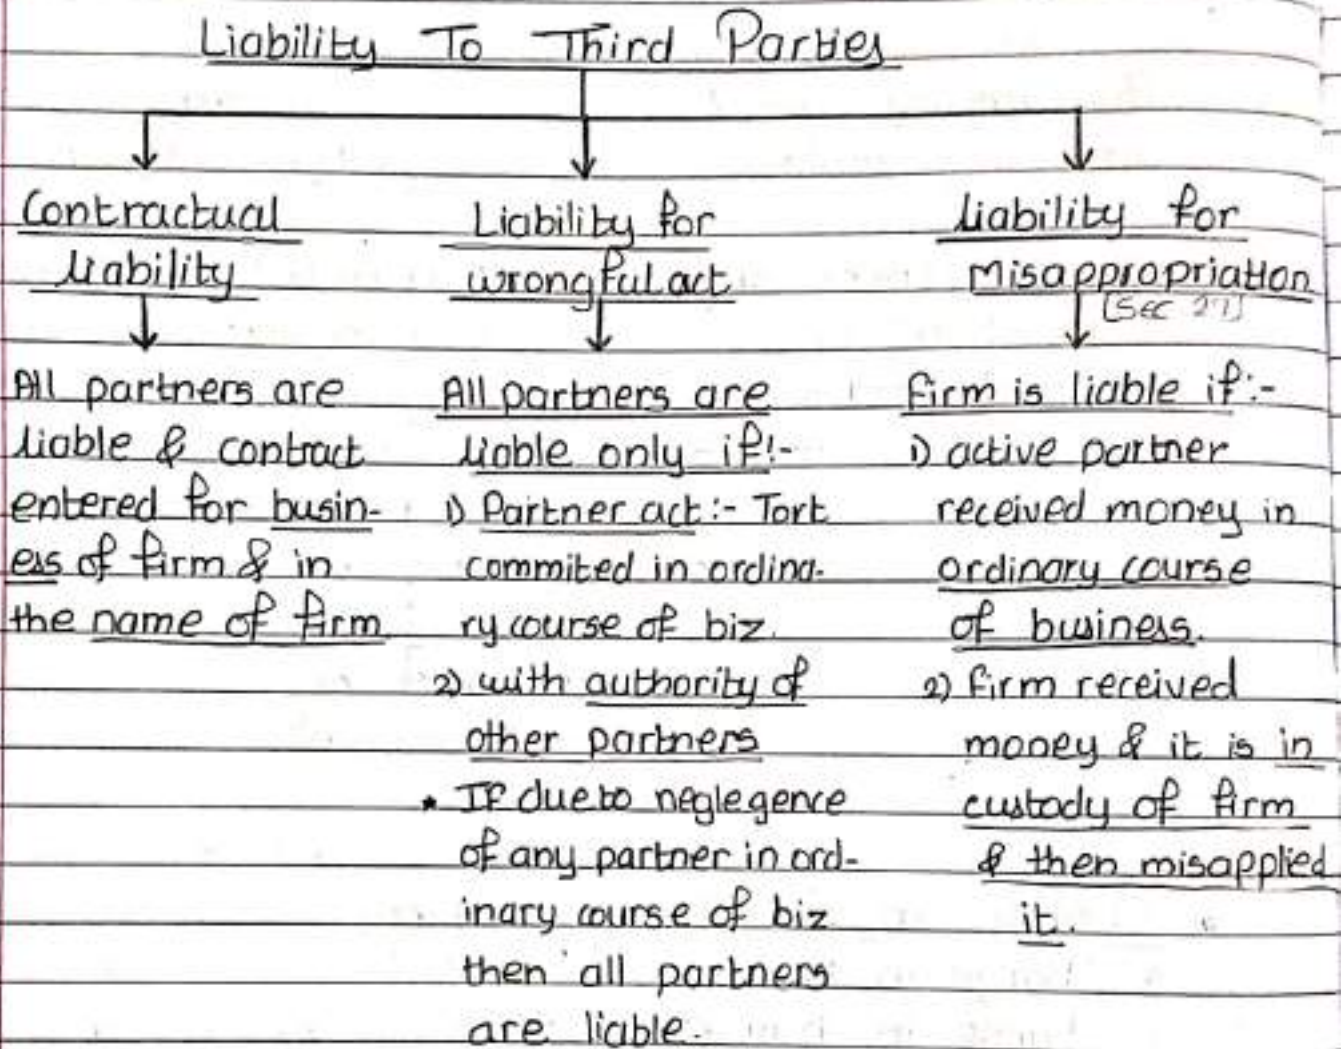 Liability To Third Parties
Contractual
liability
All partners are
liable & contract
entered for busin-
ess of firm & in
the name of firm
Liability for
wrongful act
All partners are
liable only if:-
1) Partner act:- Tort
commited in ordina-
ry course of biz.
2) with authority of
other partners
* If due to neglegence
of any partner in ord-
inary course of biz
then all partners
are liable.
liability for
Misappropriation
[Sec 27]
firm is liable if:-
1) active partner
received money in
ordinary course
of business.
2) firm received
money & it is in
custody of firm
& then misapplied
it.